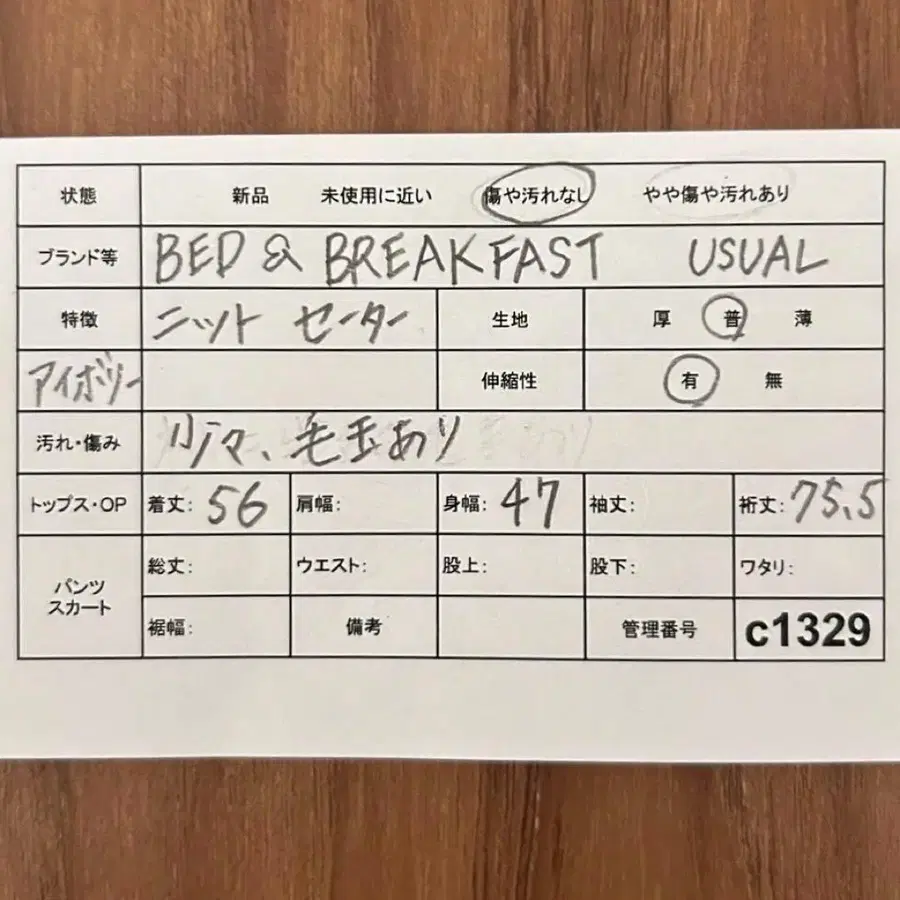 状態 新品 未使用に近い 傷や汚れなし やや傷や汚れあり
ブランド等 BED & BREAKFAST USUAL
特徴 ニット セーター 生地 厚 普 薄
アイボリー 伸縮性 有 無
汚れ・傷み 小ジマ、毛玉あり
トップス・OP 着丈: 56 肩幅: 身幅: 47 袖丈: 裄丈: 75.5
パンツ スカート 総丈: ウエスト: 股上: 股下: ワタリ:
裾幅: 備考 管理番号 c1329